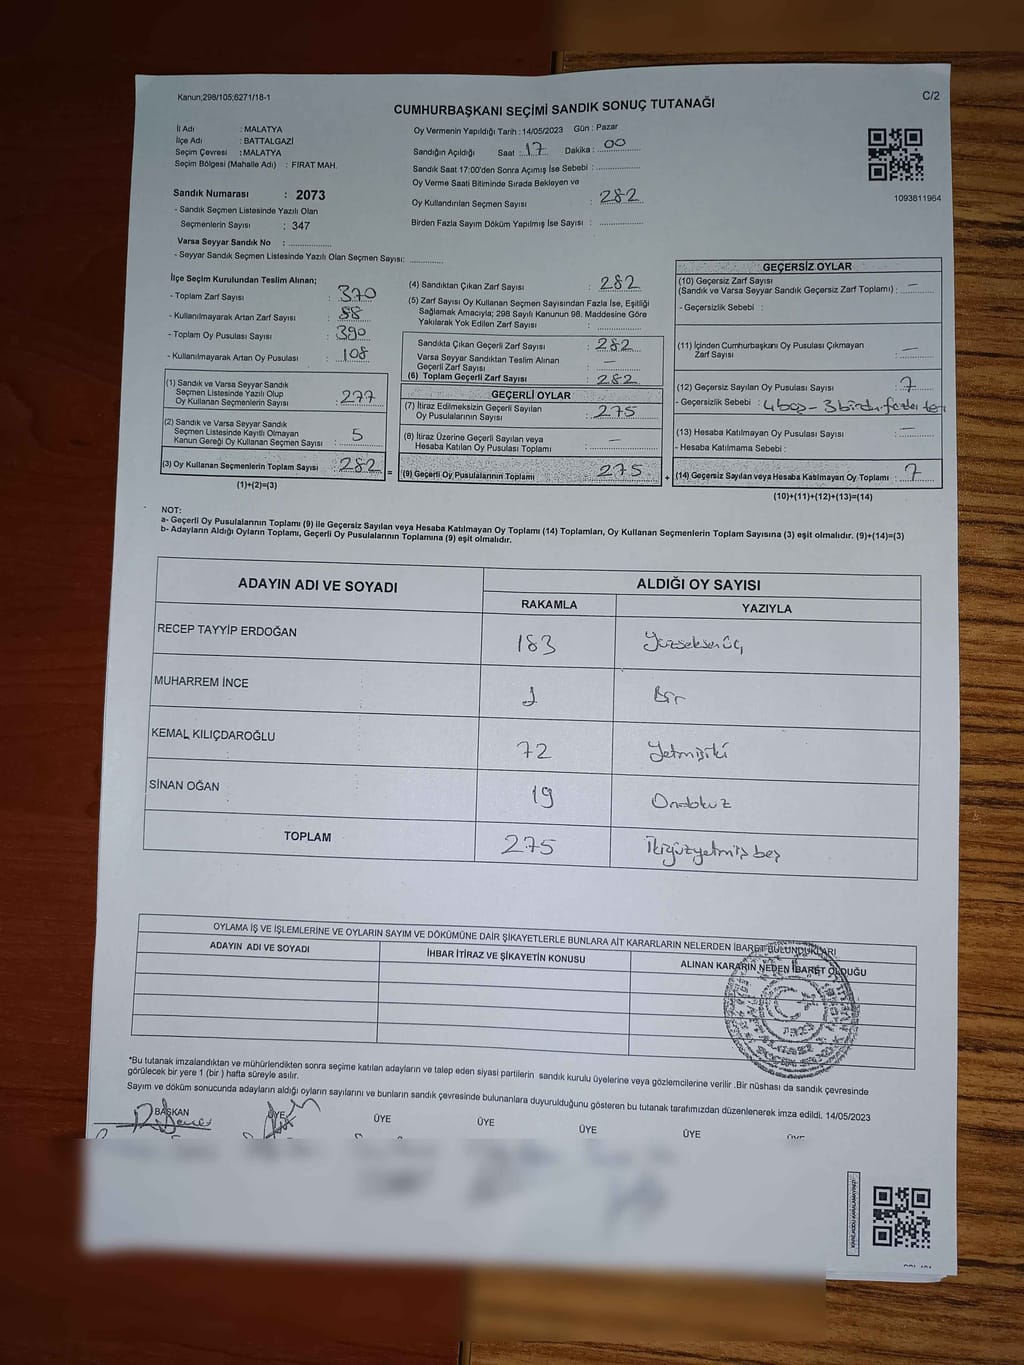 Kanun;298/105;6271/18-1
C/2
CUMHURBAŞKANI SEÇİMİ SANDIK SONUÇ TUTANAĞI
İl Adı : MALATYA
İlçe Adı : BATTALGAZİ
Seçim Çevresi : MALATYA
Seçim Bölgesi (Mahalle Adı) : FIRAT MAH.
Sandık Numarası : 2073
- Sandık Seçmen Listesinde Yazılı Olan
Seçmenlerin Sayısı : 347
Varsa Seyyar Sandık No :
- Seyyar Sandık Seçmen Listesinde Yazılı Olan Seçmen Sayısı:
Oy Vermenin Yapıldığı Tarih : 14/05/2023 Gün : Pazar
Sandığın Açıldığı Saat : 17 Dakika : 00
Sandık Saat 17:00'den Sonra Açımış İse Sebebi :
Oy Verme Saati Bitiminde Sırada Bekleyen ve
Oy Kullandırılan Seçmen Sayısı : 282
Birden Fazla Sayım Döküm Yapılmış İse Sayısı :
1093811964
İlçe Seçim Kurulundan Teslim Alınan;
- Toplam Zarf Sayısı : 370
- Kullanılmayarak Artan Zarf Sayısı : 88
- Toplam Oy Pusulası Sayısı : 390
- Kullanılmayarak Artan Oy Pusulası : 108
(1) Sandık ve Varsa Seyyar Sandık
Seçmen Listesinde Yazılı Olup
Oy Kullanan Seçmenlerin Sayısı : 277
(2) Sandık ve Varsa Seyyar Sandık
Seçmen Listesinde Kayıtlı Olmayan
Kanun Gereği Oy Kullanan Seçmen Sayısı : 5
(3) Oy Kullanan Seçmenlerin Toplam Sayısı : 282
(1)+(2)=(3)
(4) Sandıktan Çıkan Zarf Sayısı : 282
(5) Zarf Sayısı Oy Kullanan Seçmen Sayısından Fazla İse, Eşitliği
Sağlamak Amacıyla; 298 Sayılı Kanunun 98. Maddesine Göre
Yakılarak Yok Edilen Zarf Sayısı :
Sandıkta Çıkan Geçerli Zarf Sayısı : 282
Varsa Seyyar Sandıktan Teslim Alınan
Geçerli Zarf Sayısı : —
(6) Toplam Geçerli Zarf Sayısı : 282
GEÇERLİ OYLAR
(7) İtiraz Edilmeksizin Geçerli Sayılan
Oy Pusulalarının Sayısı : 275
(8) İtiraz Üzerine Geçerli Sayılan veya
Hesaba Katılan Oy Pusulası Toplamı : —
= (9) Geçerli Oy Pusulalarının Toplamı 275
GEÇERSİZ OYLAR
(10) Geçersiz Zarf Sayısı
(Sandık ve Varsa Seyyar Sandık Geçersiz Zarf Toplamı) : —
- Geçersizlik Sebebi :
(11) İçinden Cumhurbaşkanı Oy Pusulası Çıkmayan
Zarf Sayısı : —
(12) Geçersiz Sayılan Oy Pusulası Sayısı : 7
- Geçersizlik Sebebi : 4 boş - 3 birden fazla
(13) Hesaba Katılmayan Oy Pusulası Sayısı : —
- Hesaba Katılmama Sebebi :
+ (14) Geçersiz Sayılan veya Hesaba Katılmayan Oy Toplamı : 7
(10)+(11)+(12)+(13)=(14)
NOT:
a- Geçerli Oy Pusulalarının Toplamı (9) ile Geçersiz Sayılan veya Hesaba Katılmayan Oy Toplamı (14) Toplamları, Oy Kullanan Seçmenlerin Toplam Sayısına (3) eşit olmalıdır. (9)+(14)=(3)
b- Adayların Aldığı Oyların Toplamı, Geçerli Oy Pusulalarının Toplamına (9) eşit olmalıdır.
ADAYIN ADI VE SOYADI ALDIĞI OY SAYISI
RAKAMLA YAZIYLA
RECEP TAYYİP ERDOĞAN 183 Yüzseksenüç
MUHARREM İNCE 1 Bir
KEMAL KILIÇDAROĞLU 72 Yetmişiki
SİNAN OĞAN 19 Ondokuz
TOPLAM 275 İkiyüzyetmiş beş
OYLAMA İŞ VE İŞLEMLERİNE VE OYLARIN SAYIM VE DÖKÜMÜNE DAİR ŞİKAYETLERLE BUNLARA AİT KARARLARIN NELERDEN İBARET BULUNDUKLARI
ADAYIN ADI VE SOYADI İHBAR İTİRAZ VE ŞİKAYETİN KONUSU ALINAN KARARIN NEDEN İBARET OLDUĞU
*Bu tutanak imzalandıktan ve mühürlendikten sonra seçime katılan adayların ve talep eden siyasi partilerin sandık kurulu üyelerine veya gözlemcilerine verilir .Bir nüshası da sandık çevresinde
görülecek bir yere 1 (bir ) hafta süreyle asılır.
Sayım ve döküm sonucunda adayların aldığı oyların sayılarını ve bunların sandık çevresinde bulunanlara duyurulduğunu gösteren bu tutanak tarafımızdan düzenlenerek imza edildi. 14/05/2023
BAŞKAN ÜYE ÜYE ÜYE ÜYE ÜYE ÜYE